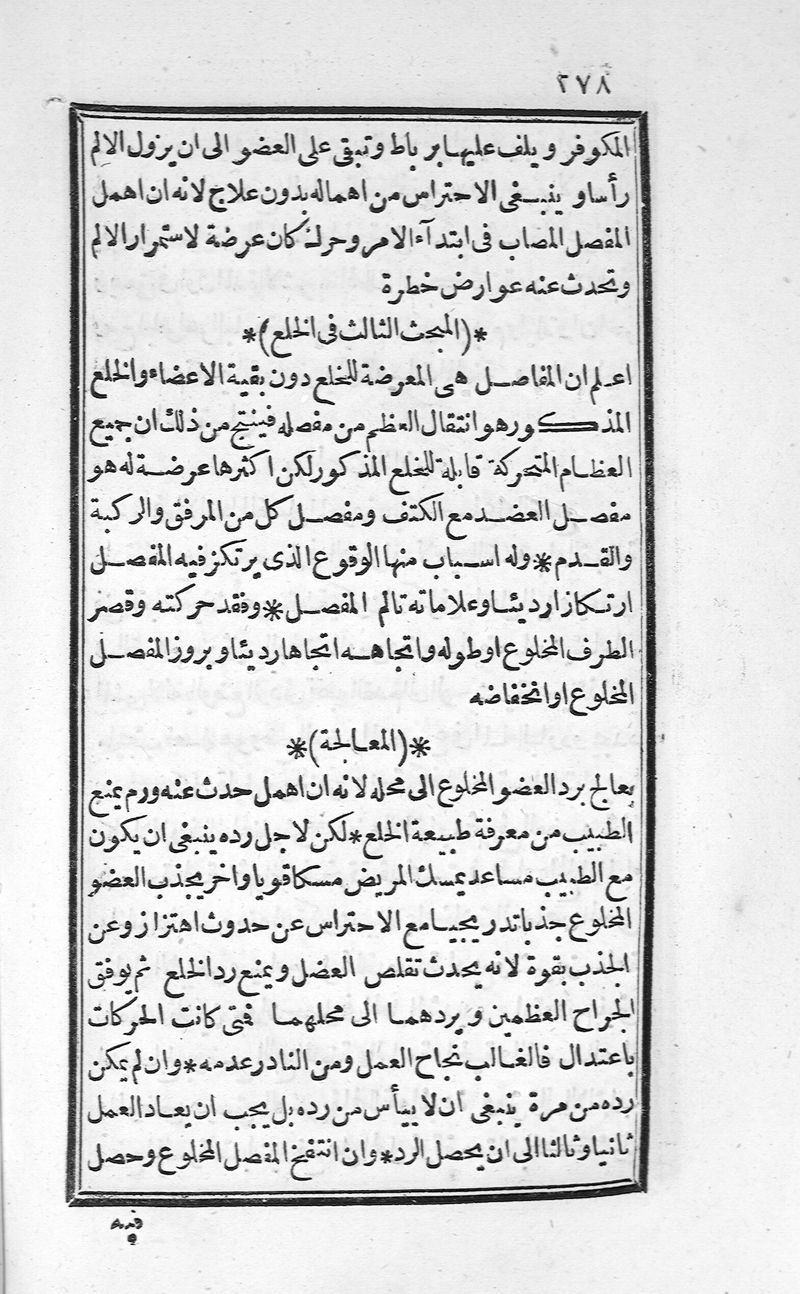 ٢٧٨
المكوفر ويلف عليها برباط وتبقى على العضو الى ان يزول الالم
رأسا وينبغى الاحتراس من اهماله بدون علاج لانه ان اهمل
المفصل المصاب فى ابتدآء الامر وحرك كان عرضة لاستمرار الالم
وتحدث عنه عوارض خطرة
*(المبحث الثالث فى الخلع)*
اعلم ان المفاصل هى المعرضة للخلع دون بقية الاعضاء والخلع
المذكور هو انتقال العظم من مفصله فينتج من ذلك ان جميع
العظام المتحركة قابلة للخلع المذكور لكن اكثرها عرضة له هو
مفصل العضد مع الكتف ومفصل كل من المرفق والركبة
والقدم * وله اسباب منها الوقوع الذى يرتكز فيه المفصل
ارتكازا رديئا وعلاماته تالم المفصل * وفقد حركته وقصر
الطرف المخلوع او طوله واتجاهه اتجاها رديئا وبروز المفصل
المخلوع او انخفاضه
*(المعالجة)*
يعالج برد العضو المخلوع الى محله لانه ان اهمل حدث عنه ورم يمنع
الطبيب من معرفة طبيعة الخلع * لكن لاجل رده ينبغى ان يكون
مع الطبيب مساعد يمسك المريض مسكا قويا واخر يجذب العضو
المخلوع جذبا تدريجيا مع الاحتراس عن حدوث اهتزاز وعن
الجذب بقوة لانه يحدث تقلص العضل ويمنع رد الخلع ثم يوفق
الجراح العظمين ويردهما الى محلهما فتى كانت الحركات
باعتدال فالغالب نجاح العمل ومن النادر عدمه * وان لم يمكن
رده من مرة ينبغى ان لا ييأس من رده بل يجب ان يعاد العمل
ثانيا وثالثا الى ان يحصل الرد * وان انتفخ المفصل المخلوع وحصل
فيه